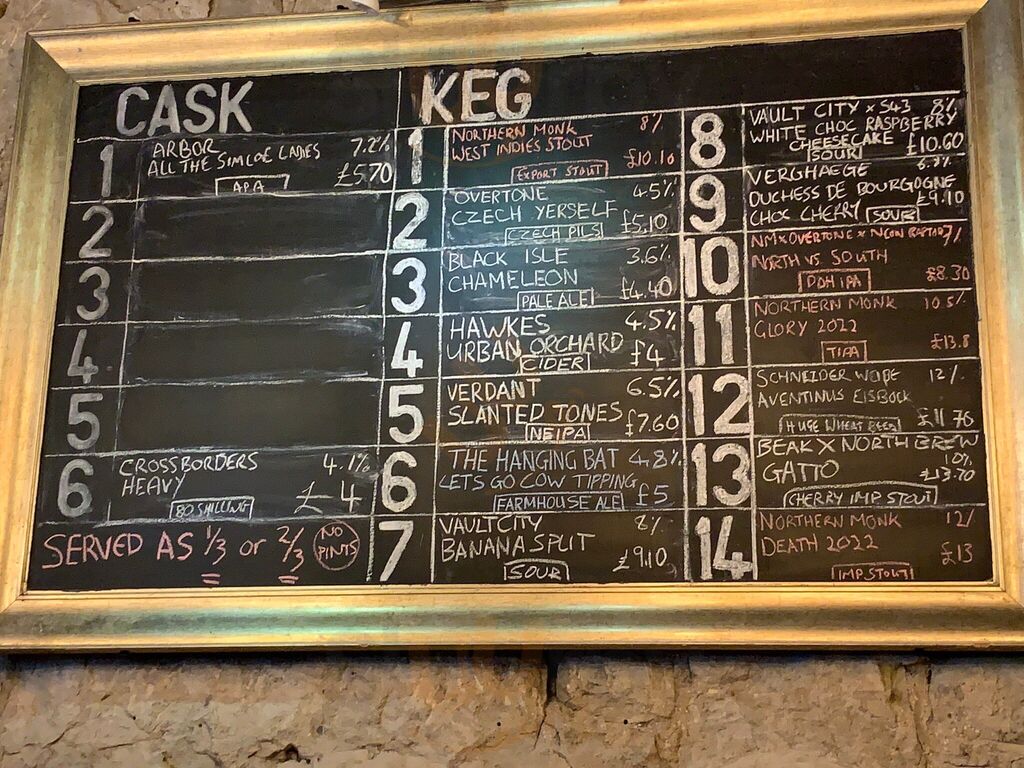 CASK
1
ARBOR 7.2%
ALL THE SIMCOE LADIES
£5.70
APA
2
3
4
5
6
CROSSBORDERS 4.1%
HEAVY
£4
80 SHILLING
SERVED AS 1/3 or 2/3 NO PINTS
KEG
1
NORTHERN MONK 8%
WEST INDIES STOUT
£10.10
EXPORT STOUT
2
OVERTONE 4.5%
CZECH YERSELF
£5.10
CZECH PILS
3
BLACK ISLE 3.6%
CHAMELEON
£4.40
PALE ALE
4
HAWKES 4.5%
URBAN ORCHARD
£4
CIDER
5
VERDANT 6.5%
SLANTED TONES
£7.60
NEIPA
6
THE HANGING BAT 4.8%
LETS GO COW TIPPING
FARMHOUSE ALE £5
7
VAULT CITY
BANANA SPLIT
£9.10
SOUR
8
VAULT CITY x S43 8%
WHITE CHOC RASPBERRY
CHEESECAKE
SOUR £10.60
9
VERGHAEGE
DUCHESS DE BOURGOGNE
£9.10
CHOC CHERRY SOUR
10
NM x OVERTONE x NEON RAPTOR 7%
NORTH VS. SOUTH
£8.30
DDH IPA
11
NORTHERN MONK 10.5%
GLORY 2022
£13.8
TIPA
12
SCHNEIDER WEISSE 12%
AVENTINUS EISBOCK
HUGE WHEAT BEER £11.70
13
BEAK X NORTH BREW
GATTO 10%
£13.70
CHERRY IMP STOUT
14
NORTHERN MONK 12%
DEATH 2022
£13
IMP STOUT